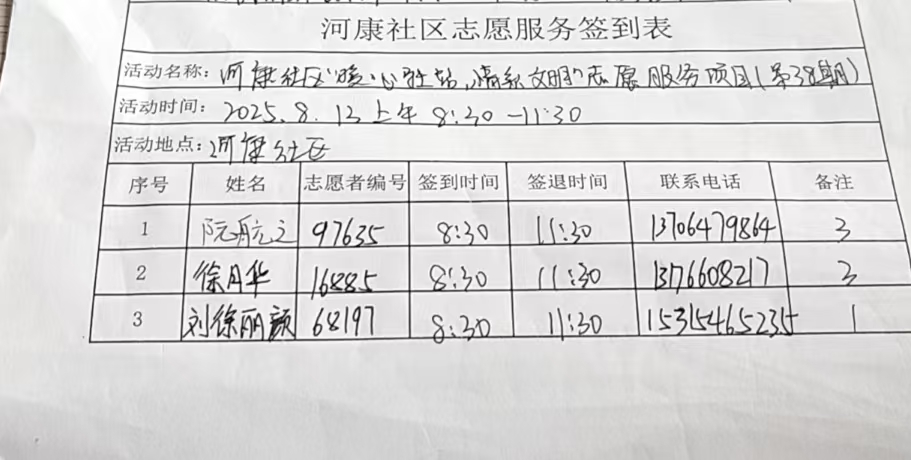 河康社区志愿服务签到表
活动名称：河康社区“暖心驿站，情系文明”志愿服务项目（第38期）
活动时间：2025.8.12上午 8:30-11:30
活动地点：河康社区
序号 姓名 志愿者编号 签到时间 签退时间 联系电话 备注
1 阮航之 97635 8:30 11:30 13706479864 3
2 徐月华 16885 8:30 11:30 13176608217 3
3 刘徐丽颜 68197 8:30 11:30 15315465235 1